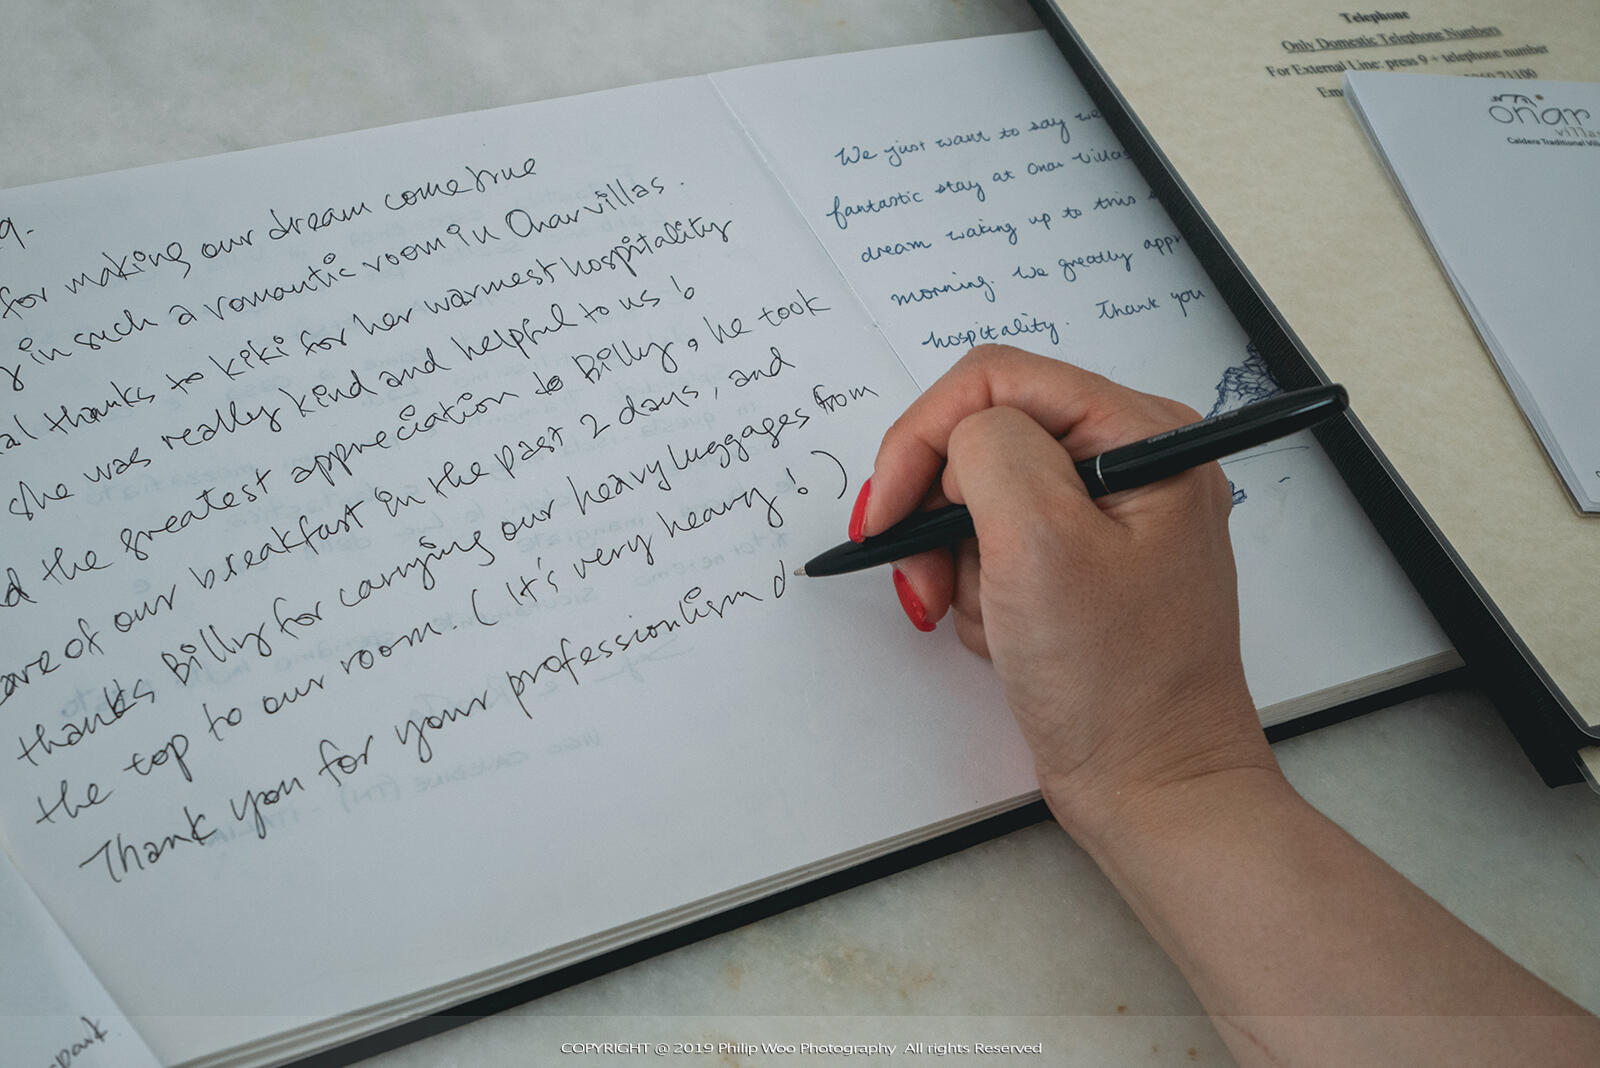 9.
for making our dream come true
y in such a romantic room in Onar villas.
al thanks to kiki for her warmest hospitality
she was really kind and helpful to us !
d the greatest appreciation to Billy, he took
are of our breakfast in the past 2 days, and
thanks Billy for carrying our heavy luggages from
the top to our room. ( It's very heavy ! )
Thank you for your professionlism d
We just want to say we
fantastic stay at Onar Villas
dream waking up to this
morning. We greatly appr
hospitality. Thank you
Telephone
Only Domestic Telephone Numbers
For External Line: press 9 + telephone number
onar
villas
Caldera Traditional Vil
COPYRIGHT @ 2019 Philip Woo Photography All rights Reserved